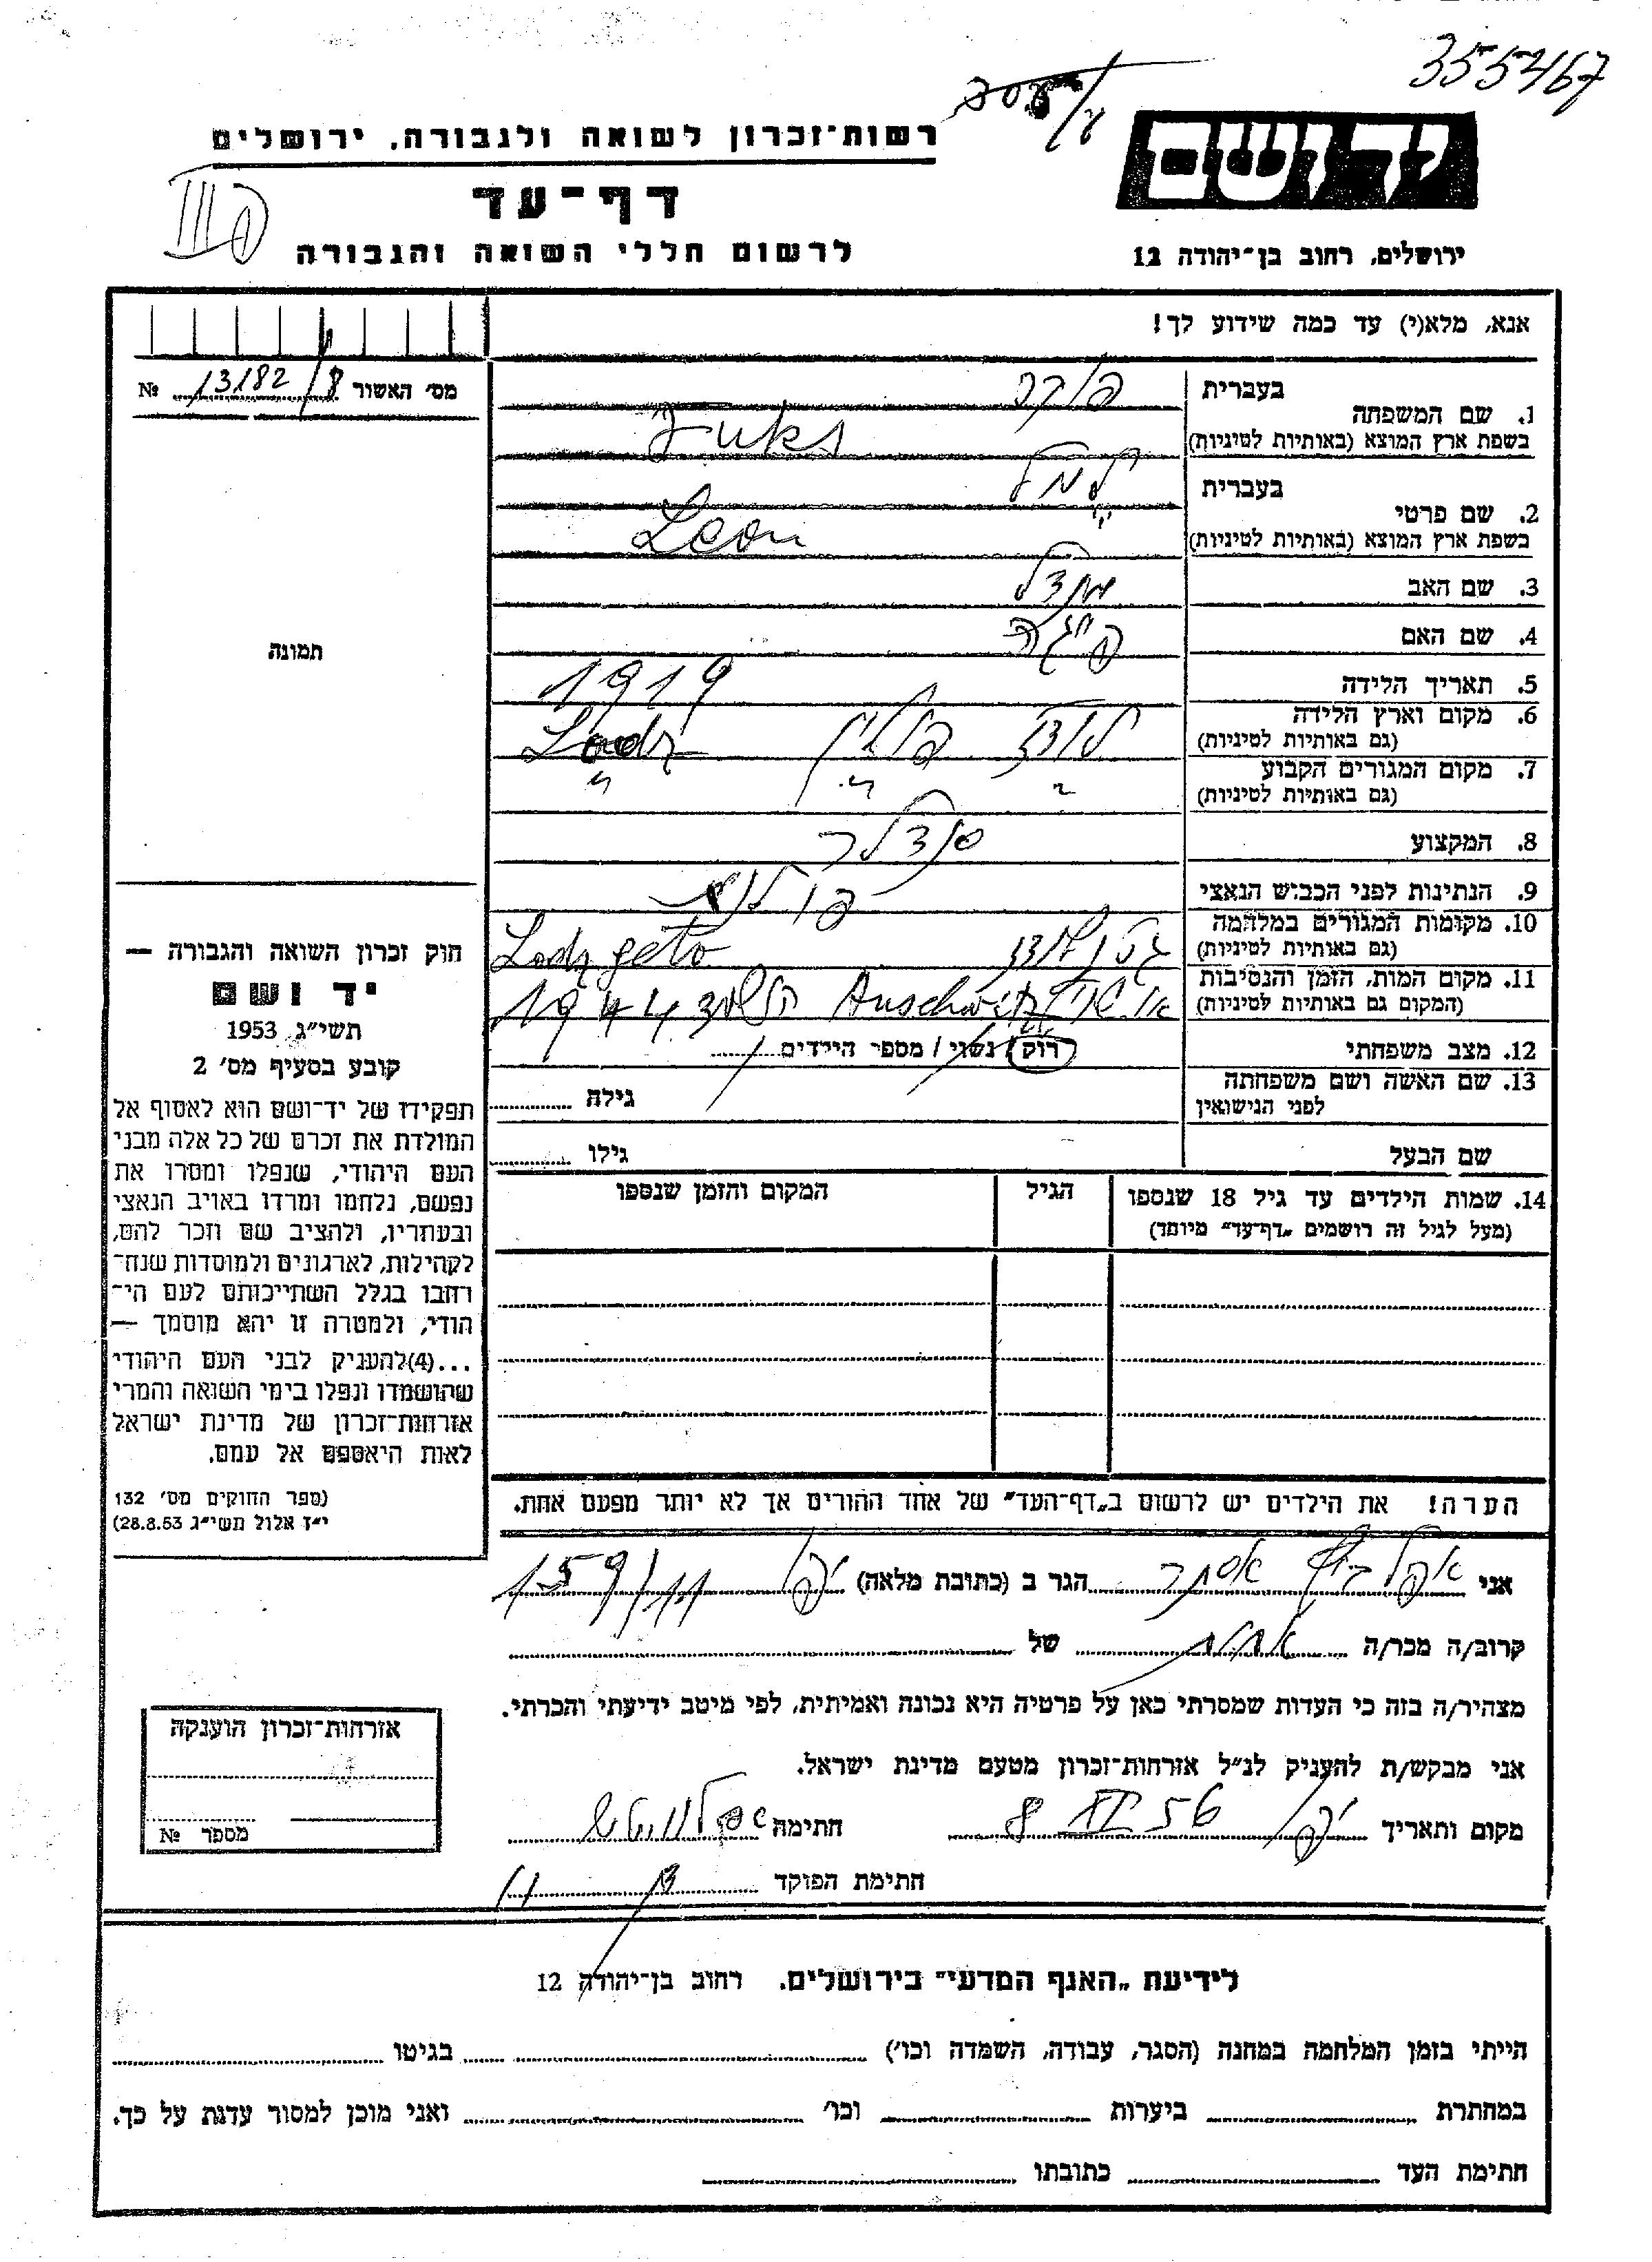 3554167
יד ושם
ירושלים, רחוב בן־יהודה 12
רשות־זכרון לשואה ולגבורה, ירושלים
דף־עד
לרשום חללי השואה והגבורה
אנא, מלא(י) עד כמה שידוע לך!
מס׳ האשור 13182/8 №
תמונה
חוק זכרון השואה והגבורה —
יד ושם
תשי״ג 1953
קובע בסעיף מס׳ 2
תפקידו של יד־ושם הוא לאסוף אל
המולדת את זכרם של כל אלה מבני
העם היהודי, שנפלו ומסרו את
נפשם, נלחמו ומרדו באויב הנאצי
ובעוזריו, ולהציב שם וזכר להם,
לקהילות, לארגונים ולמוסדות שנח־
רבו בגלל השתייכותם לעם הי־
הודי, ולמטרה זו יהא מוסמך —
...(4)להעניק לבני העם היהודי
שהושמדו ונפלו בימי השואה והמרי
אזרחות־זכרון של מדינת ישראל
לאות היאספם אל עמם.
(ספר החוקים מס׳ 132
י״ז אלול תשי״ג 28.8.53)
בעברית
1. שם המשפחה
בשפת ארץ המוצא (באותיות לטיניות) Fuks
בעברית
2. שם פרטי
בשפת ארץ המוצא (באותיות לטיניות) Leon
3. שם האב
4. שם האם פייגה
5. תאריך הלידה 1919
6. מקום וארץ הלידה לודז פולין Lodz
(גם באותיות לטיניות)
7. מקום המגורים הקבוע " " "
(גם באותיות לטיניות)
8. המקצוע סנדלר
9. הנתינות לפני הכבוש הנאצי פולנית
10. מקומות המגורים במלחמה גטו לודז Lodz geto
(גם באותיות לטיניות)
11. מקום המות, הזמן והנסיבות Auschwitz 1944
(המקום גם באותיות לטיניות)
12. מצב משפחתי רוק / נשוי / מספר הילדים
13. שם האשה ושם משפחתה גילה
לפני הנישואין
שם הבעל גילו
14. שמות הילדים עד גיל 18 שנספו הגיל המקום והזמן שנספו
(מעל לגיל זה רושמים „דף־עד״ מיוחד)
הערה! את הילדים יש לרשום ב„דף־העד״ של אחד ההורים אך לא יותר מפעם אחת.
אני אסתר הגר ב (כתובת מלאה) יפו 159/11
קרוב/ה מכר/ה אחות של
מצהיר/ה בזה כי העדות שמסרתי כאן על פרטיה היא נכונה ואמיתית, לפי מיטב ידיעתי והכרתי.
אני מבקש/ת להעניק לנ״ל אזרחות־זכרון מטעם מדינת ישראל.
מקום ותאריך יפו 56 8 חתימה
חתימת הפוקד
אזרחות־זכרון הוענקה
מספר №
לידיעת „האגף המדעי״ בירושלים. רחוב בן־יהודה 12
הייתי בזמן המלחמה במחנה (הסגר, עבודה, השמדה וכו׳) בגיטו
במחתרת ביערות וכר׳ ואני מוכן למסור עדות על כך.
חתימת העד כתובתו